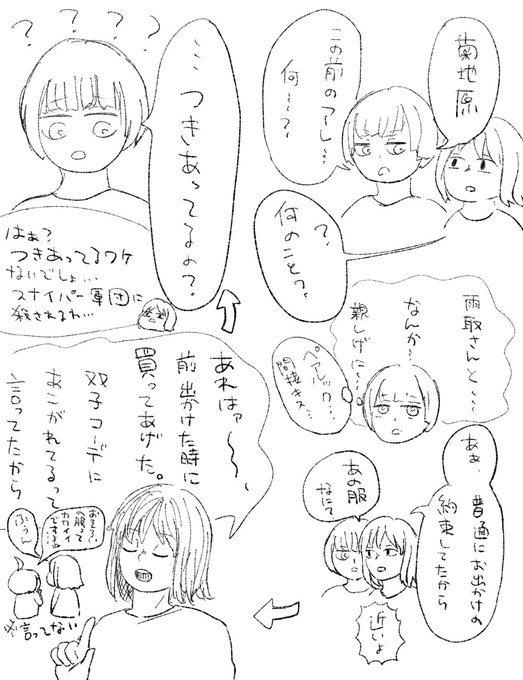 菊地原
この前のアレ…
何〜？
？
何のこと？
雨取さんと、…
なんか〜
親しげに…
ペアルック…
間接キス…
ああ、普通にお出かけの
約束してたから
あの服
なにて
近いよ
あれはァ〜〜、
前出かけた時に
買ってあげた。
双子コーデに
あこがれてるって
言ってたから
おそろ〜
の服って
カワイイ
ふぅん
※言ってない
…つきあってるの？
？？？？
はぁ？
つきあってるワケ
ないでしょ…
スナイパー軍団に
殺されるわ…